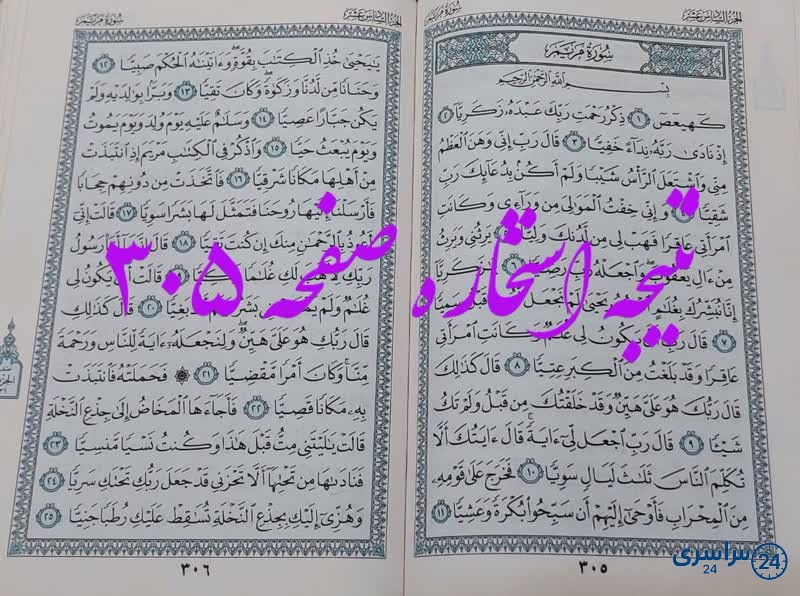 سُورَةُ مَرْيَمَ
الجُزْءُ السَّادِسَ عَشَرَ
سُورَةُ مَرْيَمَ
بِسْمِ ٱللَّهِ ٱلرَّحْمَٰنِ ٱلرَّحِيمِ
كٓهيعٓصٓ ۝١ ذِكْرُ رَحْمَتِ رَبِّكَ عَبْدَهُۥ زَكَرِيَّآ ۝٢
إِذْ نَادَىٰ رَبَّهُۥ نِدَآءً خَفِيًّا ۝٣ قَالَ رَبِّ إِنِّى وَهَنَ ٱلْعَظْمُ
مِنِّى وَٱشْتَعَلَ ٱلرَّأْسُ شَيْبًا وَلَمْ أَكُنۢ بِدُعَآئِكَ رَبِّ
شَقِيًّا ۝٤ وَإِنِّى خِفْتُ ٱلْمَوَٰلِىَ مِن وَرَآءِى وَكَانَتِ
ٱمْرَأَتِى عَاقِرًا فَهَبْ لِى مِن لَّدُنكَ وَلِيًّا ۝٥ يَرِثُنِى وَيَرِثُ
مِنْ ءَالِ يَعْقُوبَ وَٱجْعَلْهُ رَبِّ رَضِيًّا ۝٦ يَٰزَكَرِيَّآ
إِنَّا نُبَشِّرُكَ بِغُلَٰمٍ ٱسْمُهُۥ يَحْيَىٰ لَمْ نَجْعَل لَّهُۥ مِن قَبْلُ سَمِيًّا
۝٧ قَالَ رَبِّ أَنَّىٰ يَكُونُ لِى غُلَٰمٌ وَكَانَتِ ٱمْرَأَتِى
عَاقِرًا وَقَدْ بَلَغْتُ مِنَ ٱلْكِبَرِ عِتِيًّا ۝٨ قَالَ كَذَٰلِكَ
قَالَ رَبُّكَ هُوَ عَلَىَّ هَيِّنٌ وَقَدْ خَلَقْتُكَ مِن قَبْلُ وَلَمْ تَكُ
شَيْـًٔا ۝٩ قَالَ رَبِّ ٱجْعَل لِّىٓ ءَايَةً قَالَ ءَايَتُكَ أَلَّا
تُكَلِّمَ ٱلنَّاسَ ثَلَٰثَ لَيَالٍ سَوِيًّا ۝١٠ فَخَرَجَ عَلَىٰ قَوْمِهِۦ
مِنَ ٱلْمِحْرَابِ فَأَوْحَىٰٓ إِلَيْهِمْ أَن سَبِّحُوا۟ بُكْرَةً وَعَشِيًّا ۝١١
٣٠٥
الجُزْءُ السَّادِسَ عَشَرَ
سُورَةُ مَرْيَمَ
يَٰيَحْيَىٰ خُذِ ٱلْكِتَٰبَ بِقُوَّةٍ وَءَاتَيْنَٰهُ ٱلْحُكْمَ صَبِيًّا ۝١٢
وَحَنَانًا مِّن لَّدُنَّا وَزَكَوٰةً وَكَانَ تَقِيًّا ۝١٣ وَبَرًّۢا بِوَٰلِدَيْهِ وَلَمْ
يَكُن جَبَّارًا عَصِيًّا ۝١٤ وَسَلَٰمٌ عَلَيْهِ يَوْمَ وُلِدَ وَيَوْمَ يَمُوتُ
وَيَوْمَ يُبْعَثُ حَيًّا ۝١٥ وَٱذْكُرْ فِى ٱلْكِتَٰبِ مَرْيَمَ إِذِ ٱنتَبَذَتْ
مِنْ أَهْلِهَا مَكَانًا شَرْقِيًّا ۝١٦ فَٱتَّخَذَتْ مِن دُونِهِمْ حِجَابًا
فَأَرْسَلْنَآ إِلَيْهَا رُوحَنَا فَتَمَثَّلَ لَهَا بَشَرًا سَوِيًّا ۝١٧ قَالَتْ إِنِّىٓ
أَعُوذُ بِٱلرَّحْمَٰنِ مِنكَ إِن كُنتَ تَقِيًّا ۝١٨ قَالَ إِنَّمَآ أَنَا۠ رَسُولُ
رَبِّكِ لِأَهَبَ لَكِ غُلَٰمًا زَكِيًّا ۝١٩ قَالَتْ أَنَّىٰ يَكُونُ لِى
غُلَٰمٌ وَلَمْ يَمْسَسْنِى بَشَرٌ وَلَمْ أَكُ بَغِيًّا ۝٢٠ قَالَ كَذَٰلِكِ
قَالَ رَبُّكِ هُوَ عَلَىَّ هَيِّنٌ وَلِنَجْعَلَهُۥٓ ءَايَةً لِّلنَّاسِ وَرَحْمَةً
مِّنَّا وَكَانَ أَمْرًا مَّقْضِيًّا ۝٢١ ۞ فَحَمَلَتْهُ فَٱنتَبَذَتْ
بِهِۦ مَكَانًا قَصِيًّا ۝٢٢ فَأَجَآءَهَا ٱلْمَخَاضُ إِلَىٰ جِذْعِ ٱلنَّخْلَةِ
قَالَتْ يَٰلَيْتَنِى مِتُّ قَبْلَ هَٰذَا وَكُنتُ نَسْيًا مَّنسِيًّا ۝٢٣
فَنَادَىٰهَا مِن تَحْتِهَآ أَلَّا تَحْزَنِى قَدْ جَعَلَ رَبُّكِ تَحْتَكِ سَرِيًّا ۝٢٤
وَهُزِّىٓ إِلَيْكِ بِجِذْعِ ٱلنَّخْلَةِ تُسَٰقِطْ عَلَيْكِ رُطَبًا جَنِيًّا ۝٢٥
٣٠٦
نتیجه استخاره صفحه ۳۰۵
سراسری 24
24